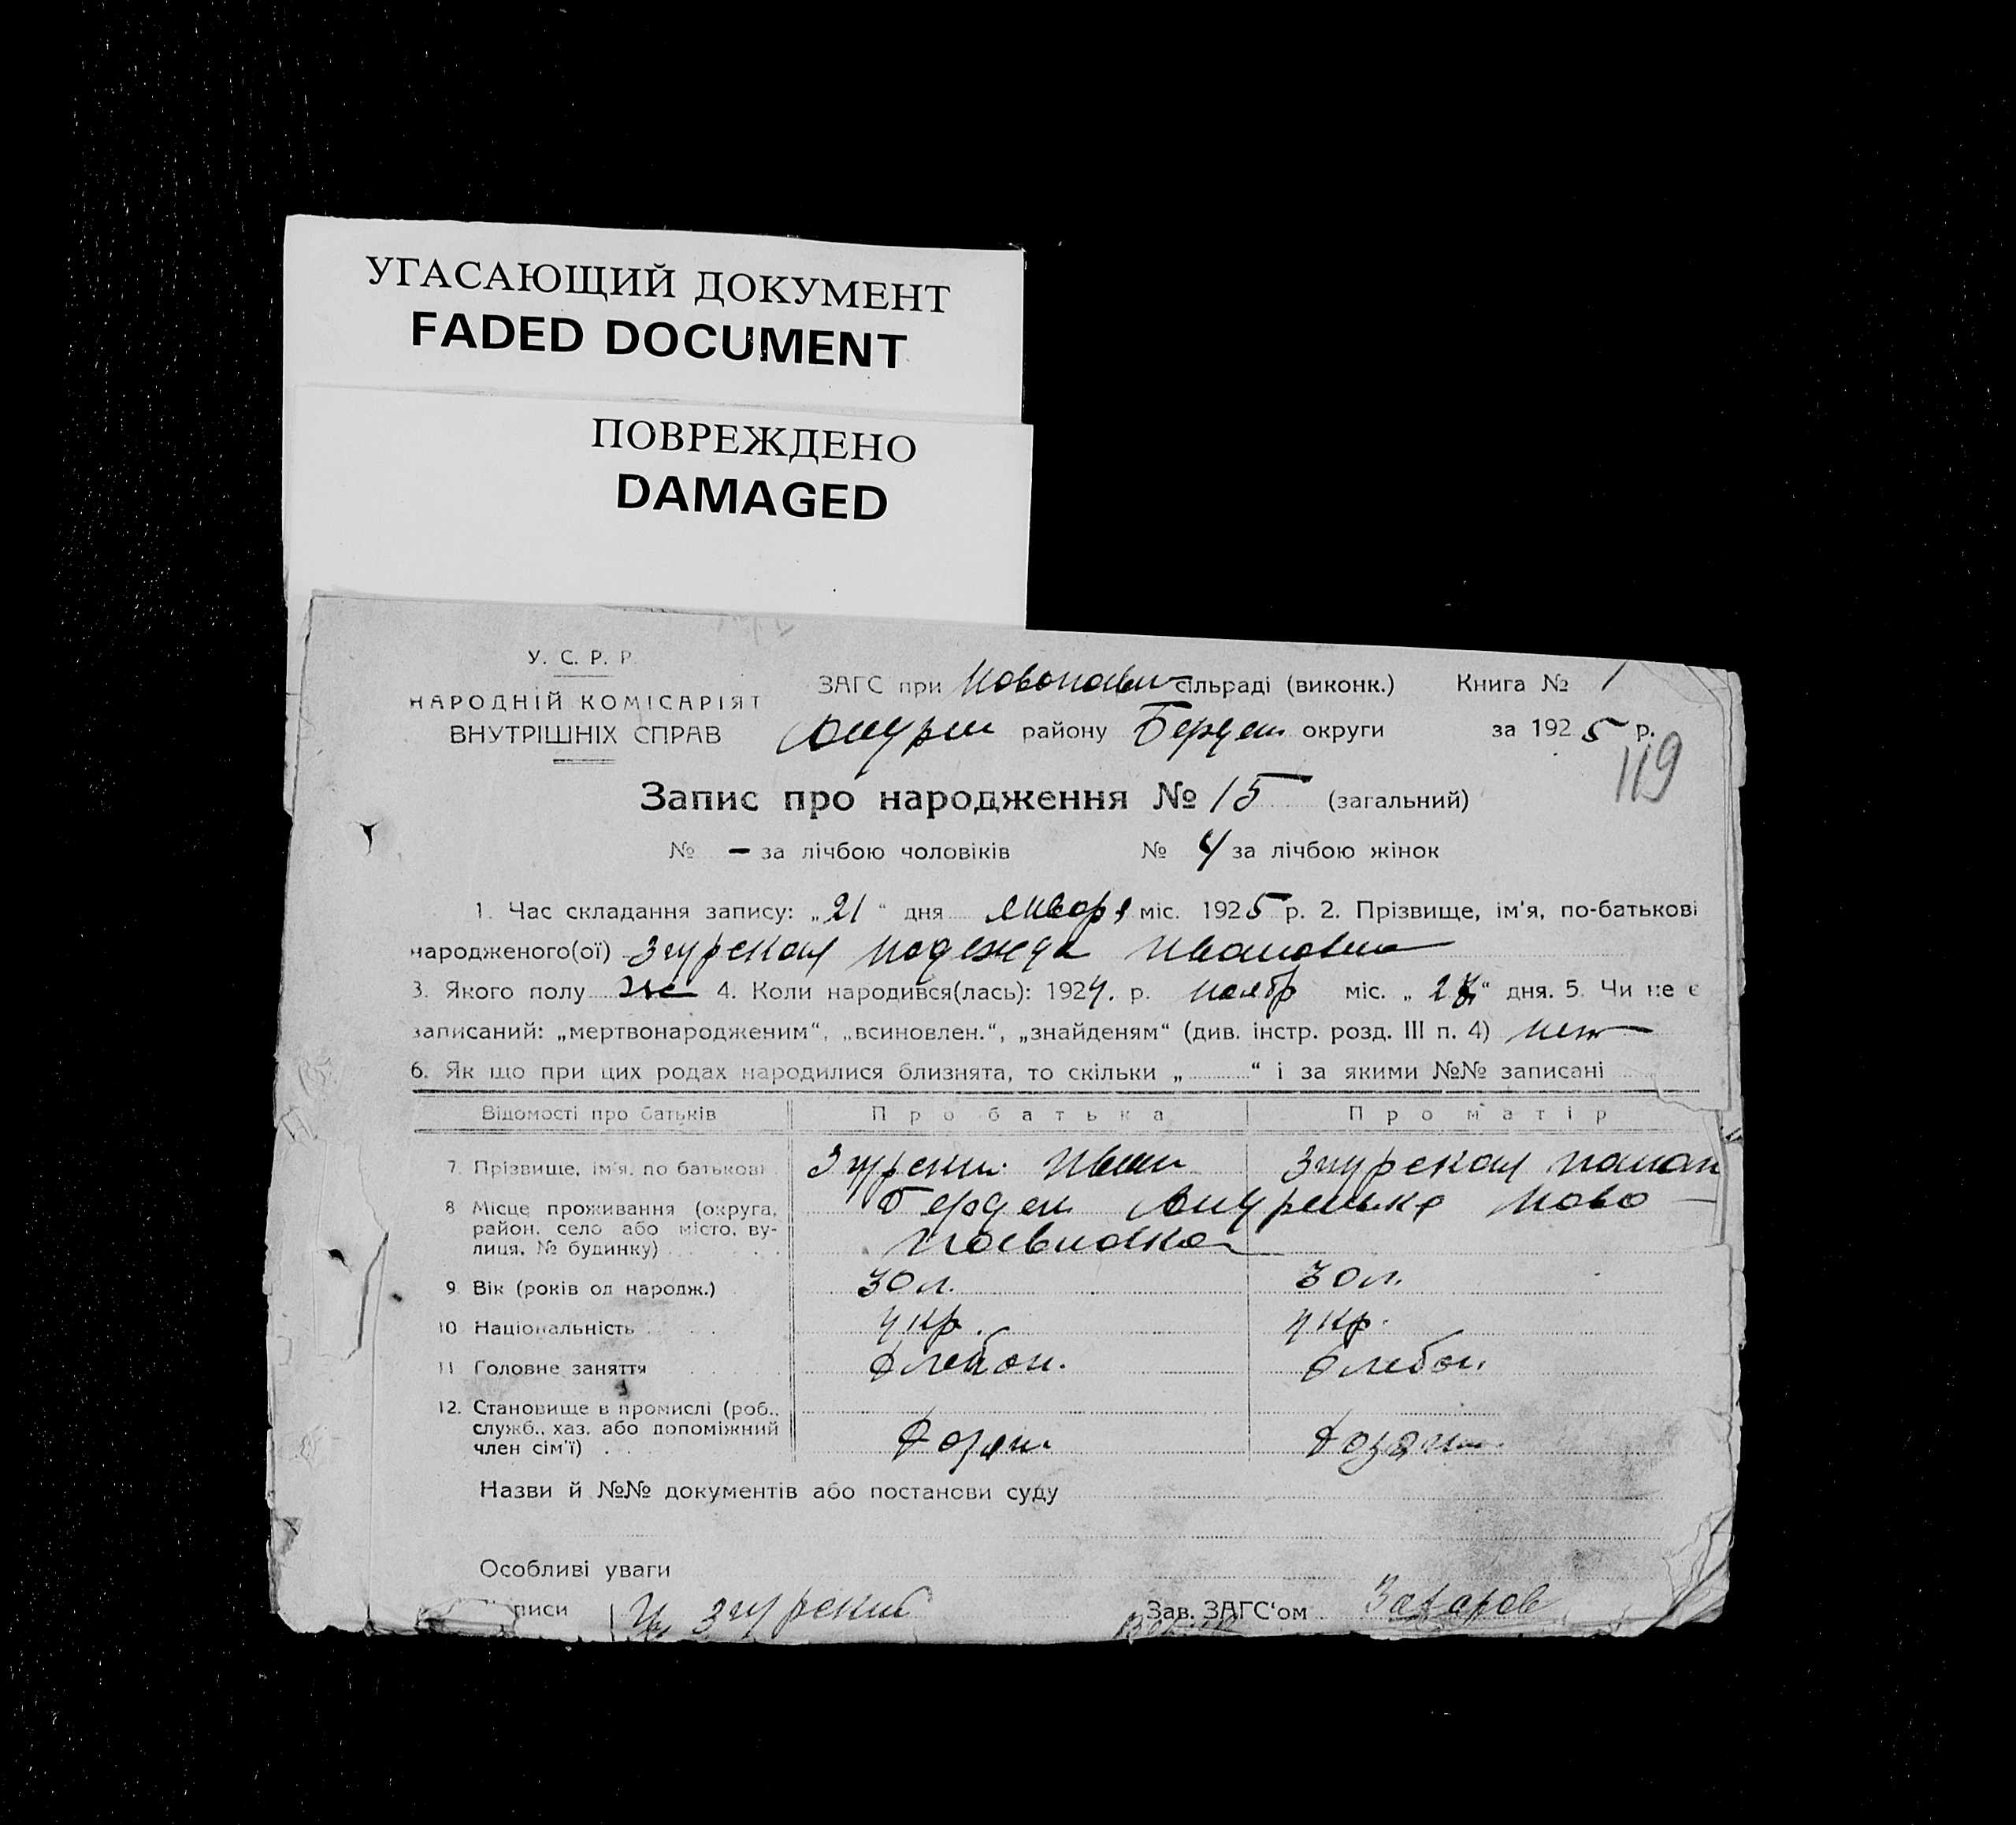 УГАСАЮЩИЙ ДОКУМЕНТ
FADED DOCUMENT
ПОВРЕЖДЕНО
DAMAGED
У. С. Р. Р.
НАРОДНІЙ КОМІСАРІЯТ
ВНУТРІШНІХ СПРАВ
ЗАГС при сільраді (виконк.) Книга № 1
району Бердян округи за 1925 р.
119
Запис про народження № 15 (загальний)
№ – за лічбою чоловіків № 4 за лічбою жінок
1. Час складання запису: „21“ дня января міс. 1925 р. 2. Прізвище, ім'я, по-батькові
народженого(ої) Згурская Надежда Ивановна
3. Якого полу жс 4. Коли народився(лась): 1924. р. ноябр міс. „ “ дня. 5. Чи не є
записаний: „мертвонародженим“, „всиновлен.“, „знайденям“ (див. інстр. розд. III п. 4) нет
6. Як що при цих родах народилися близнята, то скільки „ “ і за якими №№ записані
Відомості про батьків Про батька Про матір
7. Прізвище, ім'я, по батькові Згурский Иван Згурская
8 Місце проживання (округа, район, село або місто, вулиця, № будинку) Бердян Ново-
9. Вік (років од народж.) 30 л. 30 л.
10 Національність укр. укр.
11 Головне заняття хлебоп. хлебоп.
12. Становище в промислі (роб., служб., хаз. або допоміжний член сім'ї) хозяин хозяин
Назви й №№ документів або постанови суду
Особливі уваги
писи Згурский Зав. ЗАГС‘ом Захаров